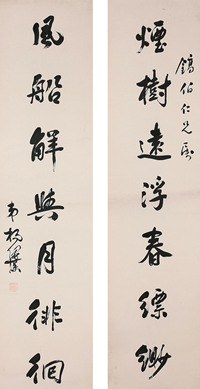 伯仁兄屬
煙樹遠浮春縹緲
風船解與月徘徊
弟楊